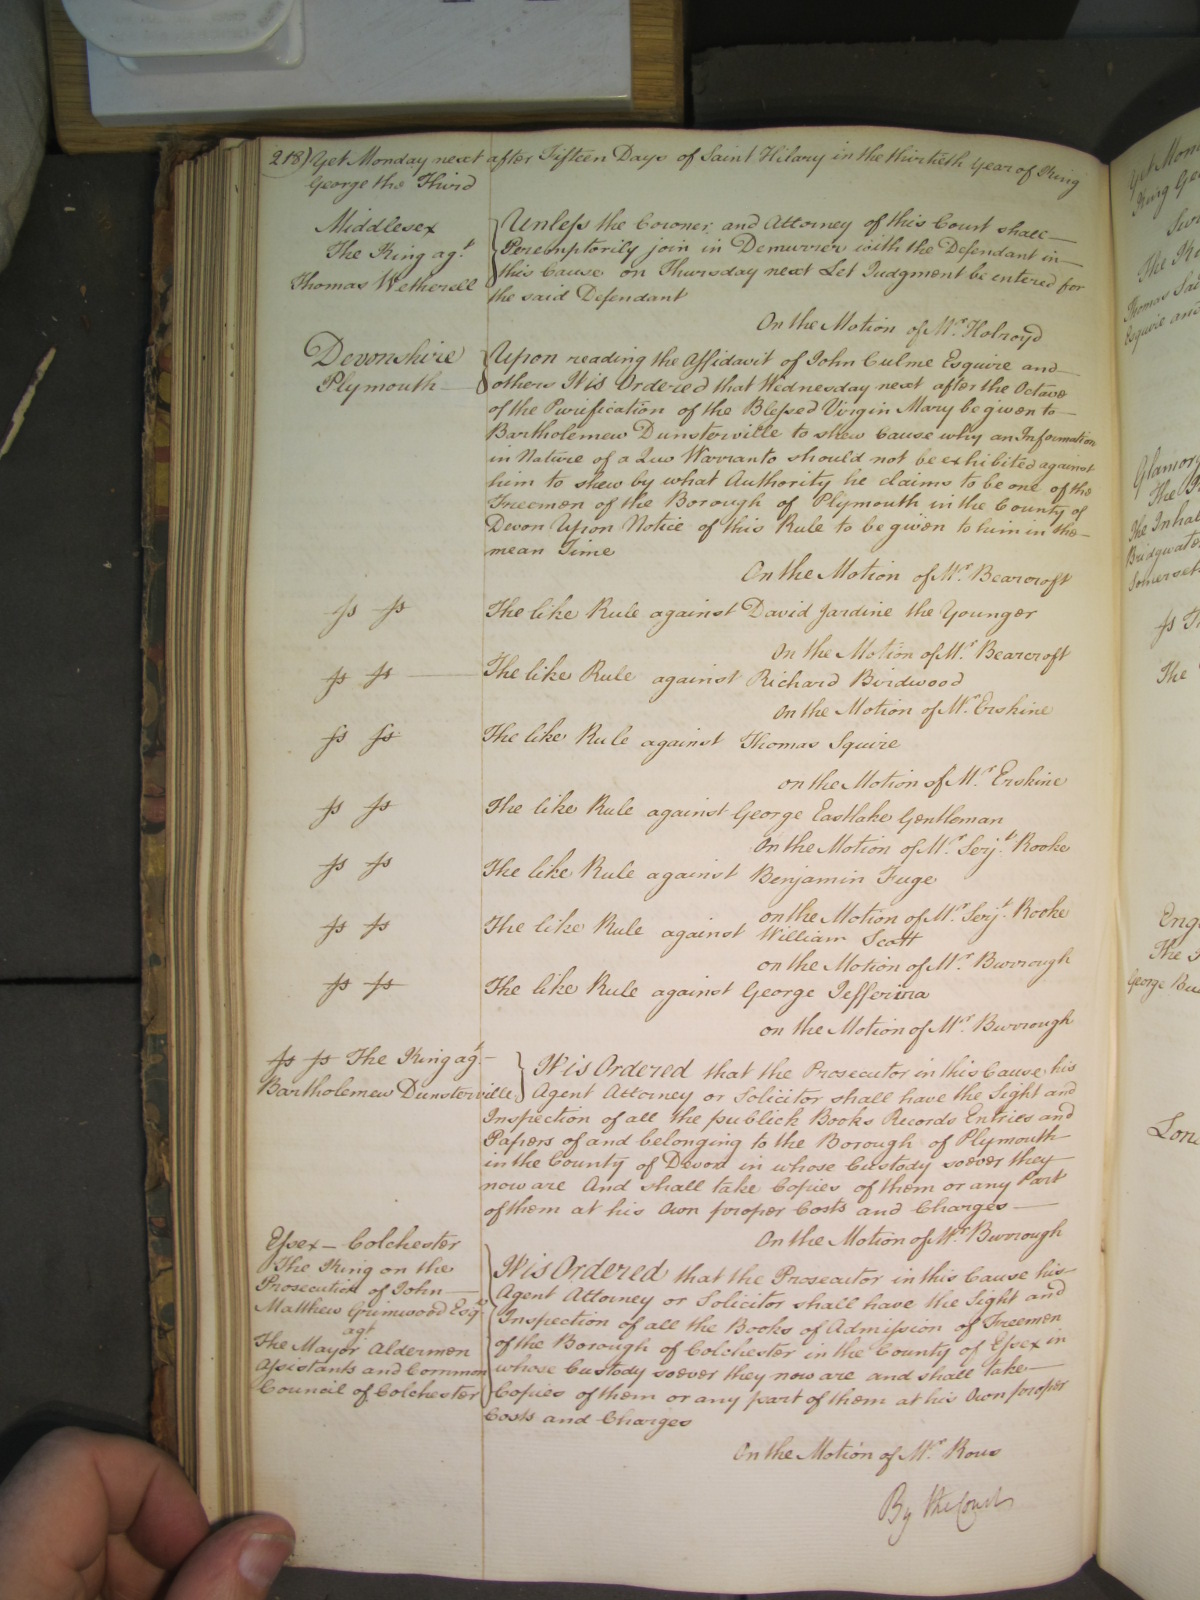 218) Yet Monday next after Fifteen Days of Saint Hilary in the thirtieth Year of King
George the Third
Middlesex
The King agt
Thomas Wetherell
Unless the Coroner and Attorney of this Court shall
Peremptorily join in Demurrer with the Defendant in
this Cause on Thursday next Let Judgment be entered for
the said Defendant
On the Motion of Mr. Holroyd
Devonshire
Plymouth
Upon reading the Affidavit of John Culme Esquire and
others It is Ordered that Wednesday next after the Octave
of the Purification of the Blessed Virgin Mary be given to
Bartholemew Dunsterville to shew Cause why an Information
in Nature of a Quo Warranto should not be exhibited against
him to shew by what Authority he claims to be one of the
Freemen of the Borough of Plymouth in the County of
Devon Upon Notice of this Rule to be given to him in the
mean Time
On the Motion of Mr. Bearcroft
Ss Ss The like Rule against David Jardine the Younger
On the Motion of Mr. Bearcroft
Ss Ss The like Rule against Richard Birdwood
On the Motion of Mr. Erskine
Ss Ss The like Rule against Thomas Squire
on the Motion of Mr. Erskine
Ss Ss The like Rule against George Eastlake Gentleman
On the Motion of Mr. Serjt. Rooke
Ss Ss The like Rule against Benjamin Fuge
on the Motion of Mr. Serjt. Rooke
Ss Ss The like Rule against William Scott
on the Motion of Mr. Burrough
Ss Ss The like Rule against George Jefferira
on the Motion of Mr. Burrough
Ss Ss The King agt.
Bartholemew Dunsterville
It is Ordered that the Prosecutor in this Cause his
Agent Attorney or Solicitor shall have the Sight and
Inspection of all the publick Books Records Entries and
Papers of and belonging to the Borough of Plymouth
in the County of Devon in whose Custody soever they
now are And shall take Copies of them or any Part
of them at his Own proper Costs and Charges
On the Motion of Mr. Burrough
Essex - Colchester
The King on the
Prosecution of John
Matthew Grimwood Esqr.
agt
The Mayor Aldermen
Assistants and Common
Council of Colchester
It is Ordered that the Prosecutor in this Cause his
Agent Attorney or Solicitor shall have the Sight and
Inspection of all the Books of Admission of Freemen
of the Borough of Colchester in the County of Essex in
whose Custody soever they now are and shall take
Copies of them or any part of them at his Own proper
Costs and Charges
On the Motion of Mr. Rous
By the Court